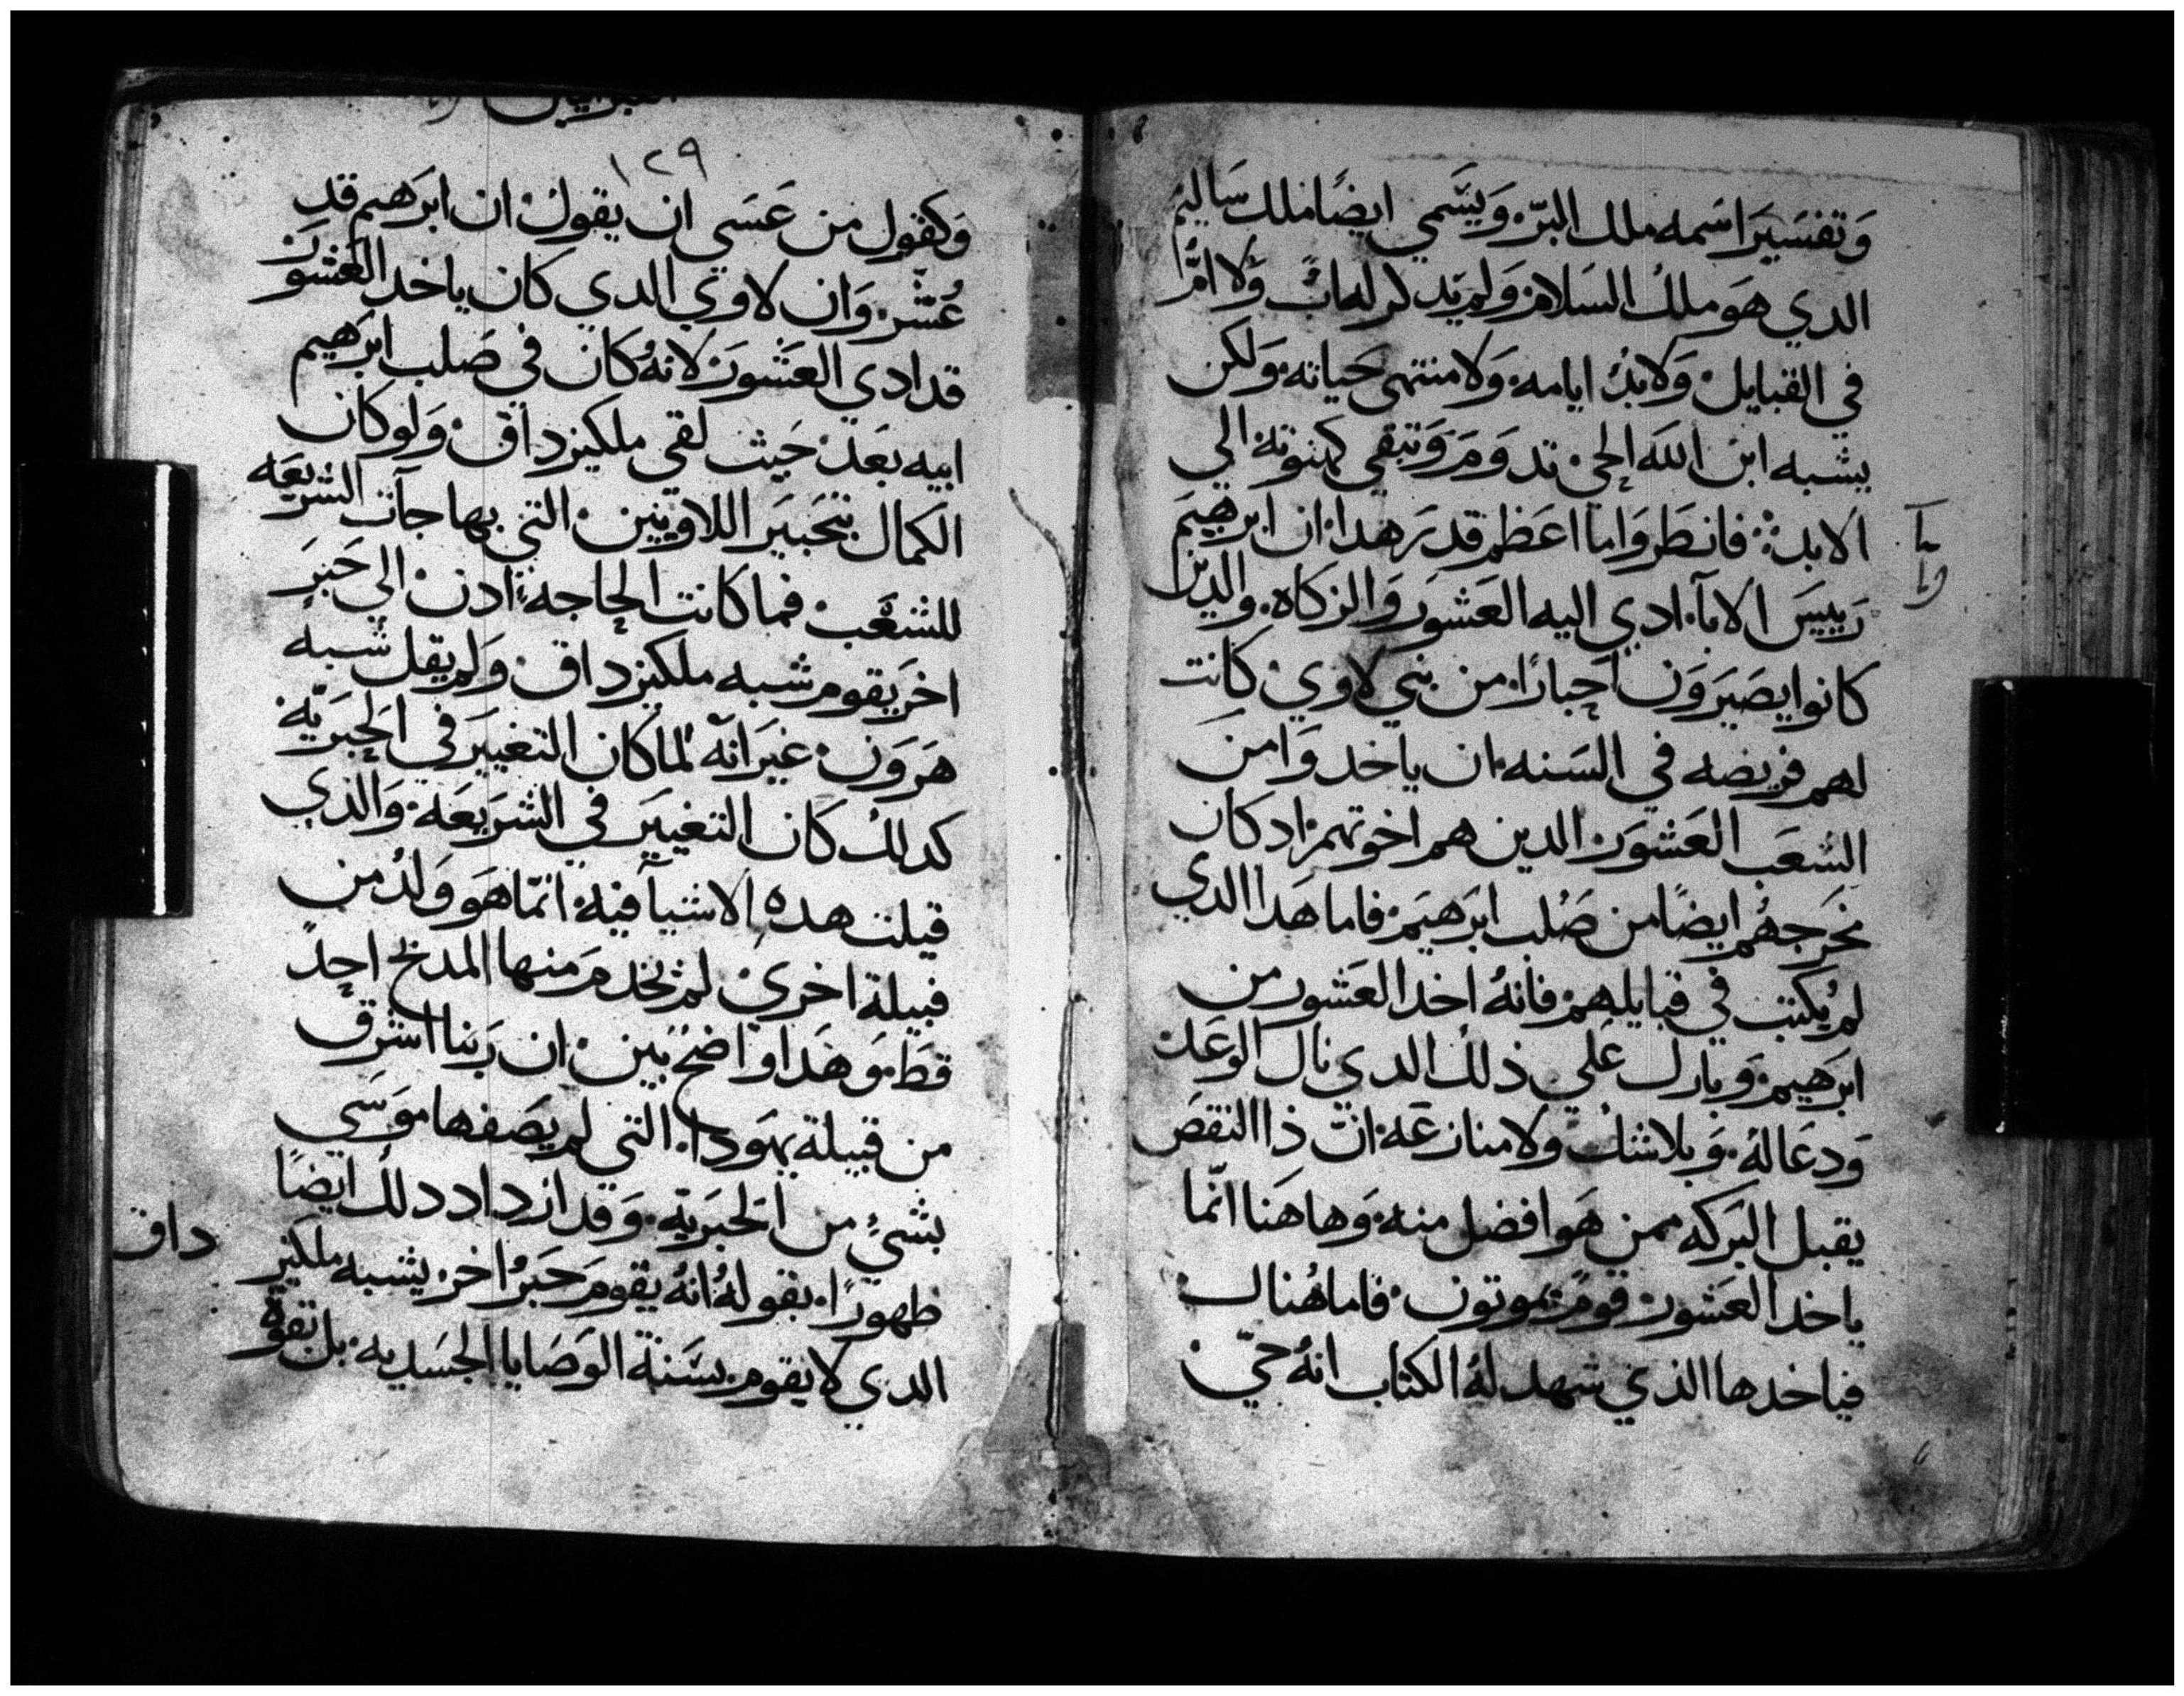 وَتفسَيرَ اسَمه ملك البرّ. وَيسَّمي ايضًا ملك سَاليم
الدي هوَ ملك السَلام. وَلم يَدكر له ابٌ وَلا امٌ
في القبايل. وَلا بدُ ايامه. وَلا منتهى حَياته. وَلكن
يشبه ابن اللَه الحي. تدوَمَ وَتبقي كهنوته الي
الابد. فانظَروَا ما اعَظم قدرَ هدا. ان ابرهيَم
رَييسَ الابآ. ادي اليه العَشورَ وَالزكاه. والدين
كانوا يصَيرَوَن احَبارًا. من بني لاوي. كانت
لهم فريضه في السَنه. ان ياخدوَا منَ
الشعَب العَشورَ. الدين هم اخوتهم. اد كان
مخرَجهُم ايضًا من صَلب ابرَهيَم. فاما هَدا الدي
لم يُكتب في قبايلهم. فانهُ اخد العَشورَ من
ابرَهيم. وَبارك عَلي ذلك الدي نال الوعَد.
وَدعَا لهُ. وَبلا شك ولا منازعَه. انّ ذا النقصَ
يقبل البرَكه ممن هوَ افضل منه. وَهاهَنا انّما
ياخد العَشورَ. قومٌ يموتون. فاما هُناك.
فياخدها الذي شهد لهُ الكتاب انهُ حيّ.
يبا
ريا
١٢٩
وَكقول من عَسَي ان يقول. ان ابرَهيم قد
عُشّر. وَان لاوي الدي كان ياخد العَشورَ
قد ادي العَشورَ. لانهُ كان في صَلب ابرَهيم
ابيه بعَد. حَيث لقي ملكيزداق. وَلو كان
الكمال بتحَبيَر اللاويين. التي بها جآت الشريعَه
للشعَب. فما كانت الحاجه اذن. الي حَبرَ
اخرَ يقوم شبه ملكيزداق. وَلم يقل شبه
هَرَوَن. غيرَ انهّ لما كان التغييرَ في الحَبرَيّه.
كدلك كان التغييرَ في الشرَيعَة. وَالذي
قيلت هده الاشيآ فيه. انمّا هوَ وَلدُ من
قبيلة اخري. لم يَخدمَ منها المدبح احدٌ
قطَ. وَهَدا وَاضحٌ بَين. ان رَبنا اشرَق
من قبيلة يهوَدا. التي لم يصَفها موَسَي
بشيءٍ من الحَبرَيّه. وَقد ازداد دلك ايضًا
ظهورًا. بقولهُ انهُ يقومَ حَبرُ اخر. يشبه ملكيز
داق
الدي لا يقوم. بسَنة الوَصَايا الجسَديه. بل بقوة